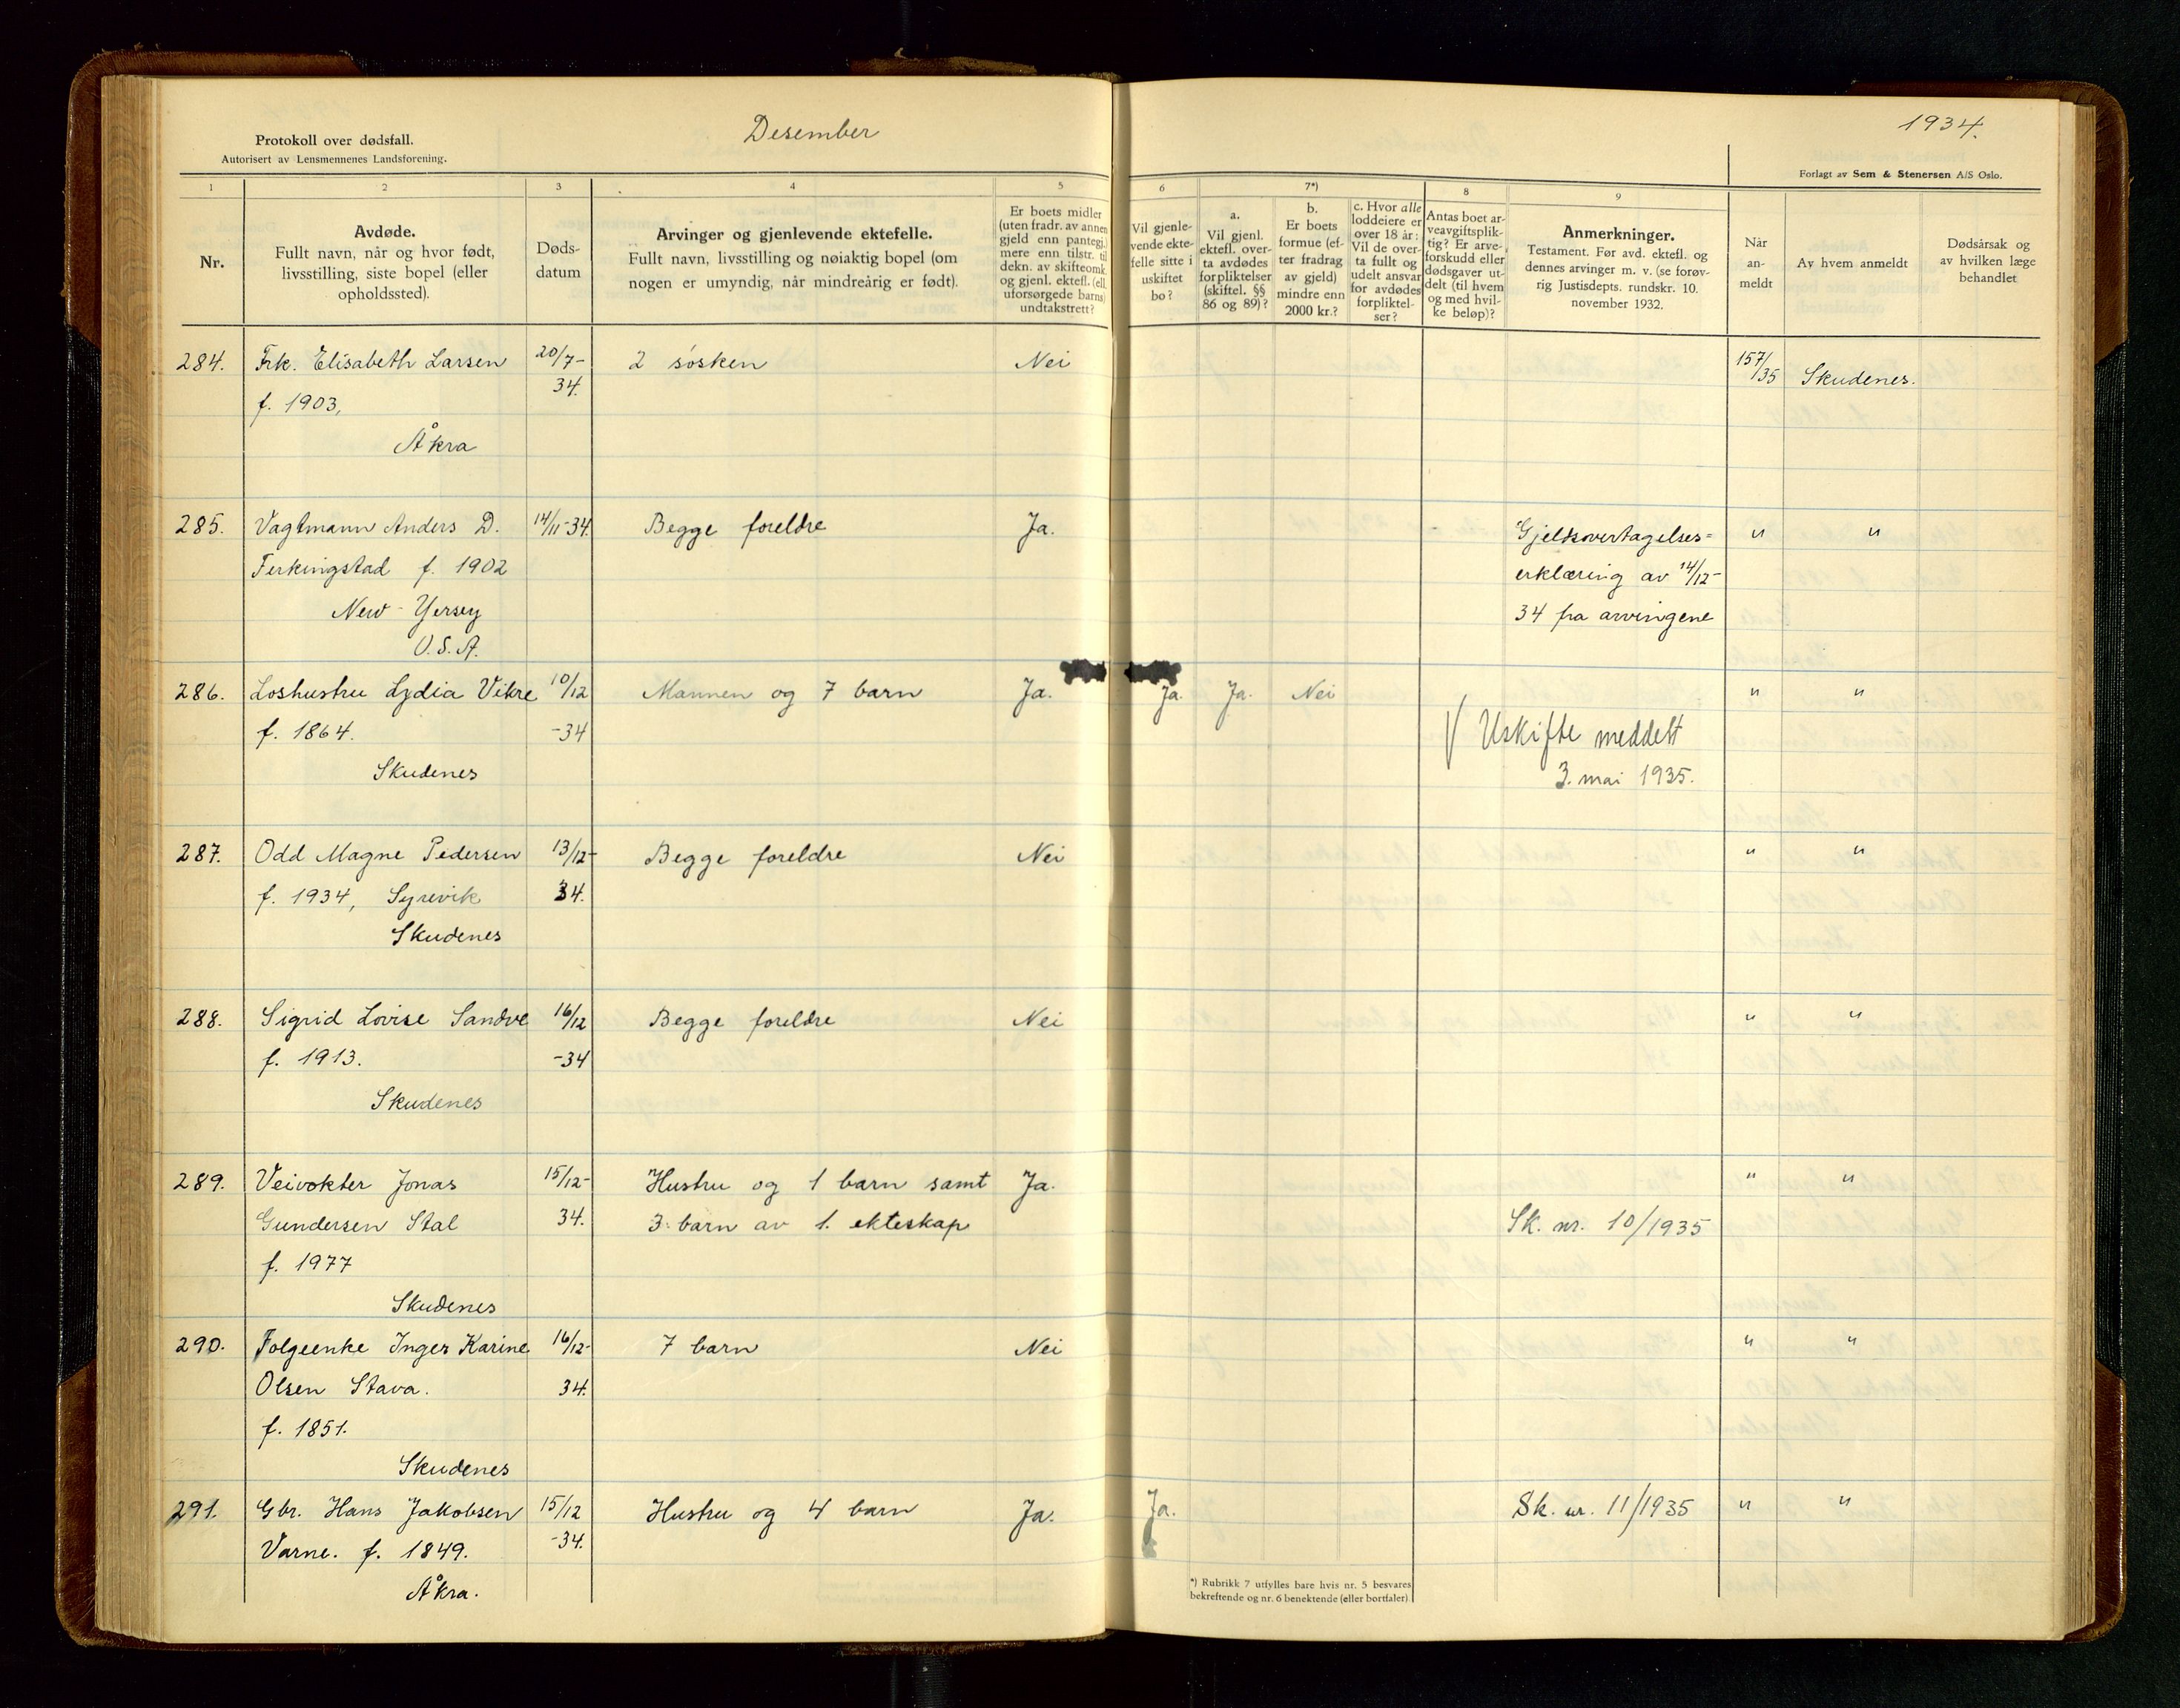 Desember
1934.
Protokoll over dødsfall.
Autorisert av Lensmennenes Landsforening.
Forlagt av Sem & Stenersen A/S Oslo.
1 2 3 4 5 6 7*) 8 9
Nr.
Avdøde.
Fullt navn, når og hvor født,
livsstilling, siste bopel (eller
opholdssted).
Døds-
datum
Arvinger og gjenlevende ektefelle.
Fullt navn, livsstilling og nøiaktig bopel (om
nogen er umyndig, når mindreårig er født).
Er boets midler
(uten fradr. av annen
gjeld enn pantegj.)
mere enn tilstr. til
dekn. av skifteomk.
og gjenl. ektefl. (ell.
uforsørgede barns)
undtakstrett?
Vil gjenle-
vende ekte-
felle sitte i
uskiftet
bo?
a.
Vil gjenl.
ektefl. over-
ta avdødes
forpliktelser
(skiftel. §§
86 og 89)?
b.
Er boets
formue (ef-
ter fradrag
av gjeld)
mindre enn
2000 kr.?
c. Hvor alle
loddeiere er
over 18 år:
Vil de over-
ta fullt og
udelt ansvar
for avdødes
forpliktel-
ser?
Antas boet ar-
veavgiftsplik-
tig? Er arve-
forskudd eller
dødsgaver ut-
delt (til hvem
og med hvil-
ke beløp)?
Anmerkninger.
Testament. Før avd. ektefl. og
dennes arvinger m. v. (se forøv-
rig Justisdepts. rundskr. 10.
november 1932.
Når
an-
meldt
Av hvem anmeldt
Dødsårsak og
av hvilken læge
behandlet
284. Frk. Elisabeth Larsen 20/7- 2 søsken Nei 157/35 Skudenes.
f. 1903, 34.
Åkra
285. Vagtmann Anders D. 14/11-34. Begge foreldre Ja. Gjeldsovertagelses= " "
Ferkingstad f. 1902 erklæring av 14/12-
New-Yersey 34 fra arvingene
U.S.A.
286. Loshustru Lydia Vikre 10/12 Mannen og 7 barn Ja. Ja. Ja. Nei " "
f. 1864. -34 Uskifte meddelt
Skudenes 3. mai 1935.
287. Odd Magne Pedersen 13/12- Begge foreldre Nei " "
f. 1934, Syrevik 34.
Skudenes
288. Sigrid Lovise Sandve 16/12 Begge foreldre Nei " "
f. 1913. -34
Skudenes
289. Veivokter Jonas 15/12- Hustru og 1 barn samt Ja. " "
Gundersen Stal 34. 3 barn av 1. ekteskap Sk. nr. 10/1935
f. 1977
Skudenes
290. Folgeenke Inger Karine 16/12- 7 barn Nei " "
Olsen Stava. 34.
f. 1851.
Skudenes
291. Gbr. Hans Jakobsen 15/12 Hustru og 4 barn Ja. Ja. Sk. nr. 11/1935 " "
Varne. f. 1849. -34.
Åkra.
*) Rubrikk 7 utfylles bare hvis nr. 5 besvares
bekreftende og nr. 6 benektende (eller bortfaler)